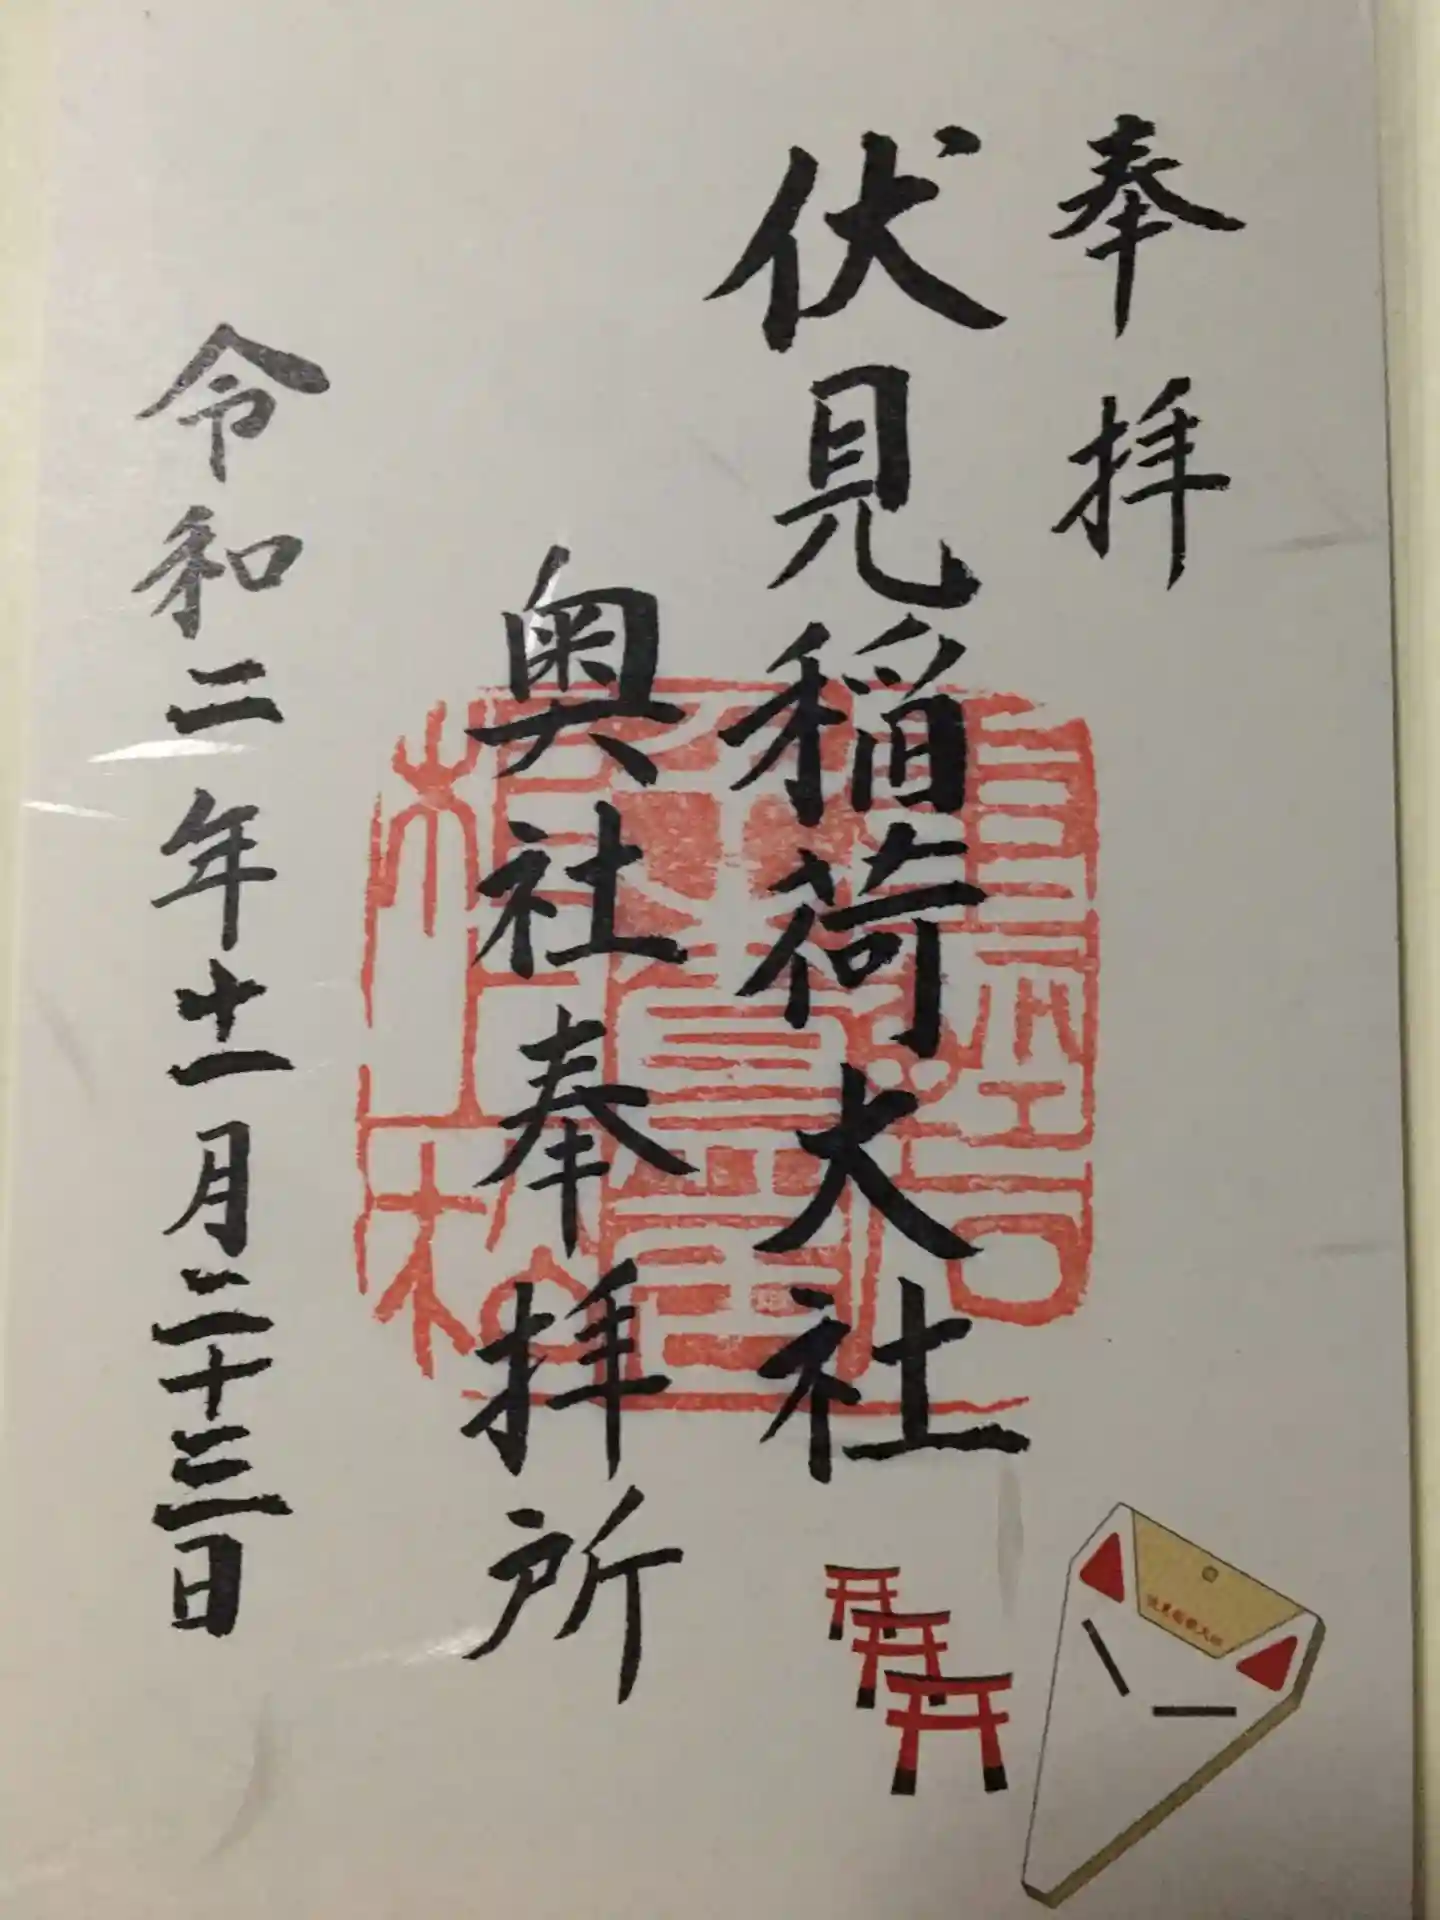 奉拝
伏見稲荷大社
奥社奉拝所
令和二年十一月二十三日
伏見稲荷大社